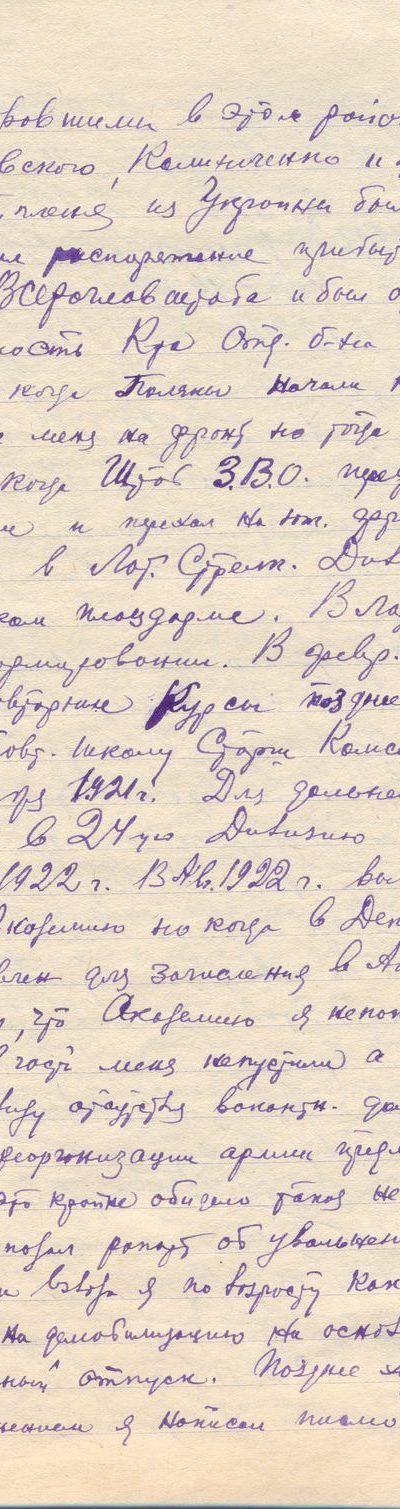 ровшими в этом райо
вского, Калиниченко и
пленя из Украины был
распоряжение прибыт
Всероглавштаба и был о
ность К-ра Отд. б-на
когда Поляки начали
меня на фронт но тогда
когда Штаб З.В.О. пере
и переехал на
в Лат. Стрелк. Див
ком плацдарме. В Ла
ормировании. В февр.
овторные Курсы позднее
овт. школу Старш Комс
1921 г. Для дальне
в 24ую Дивизию
1922 г. В Ав. 1922 г. вы
Академию но когда в Деп
влен для зачисления в Ак
, что Академию я непоп
часть меня непустили а
виду отсутствя вакантн. до
реорганизации армии предл
это крайне обидело такая не
подал рапорт об увольнен
взвода я по возрасту как
на демобилизацию на основ
ный отпуск. Позднее
нением я написал письмо